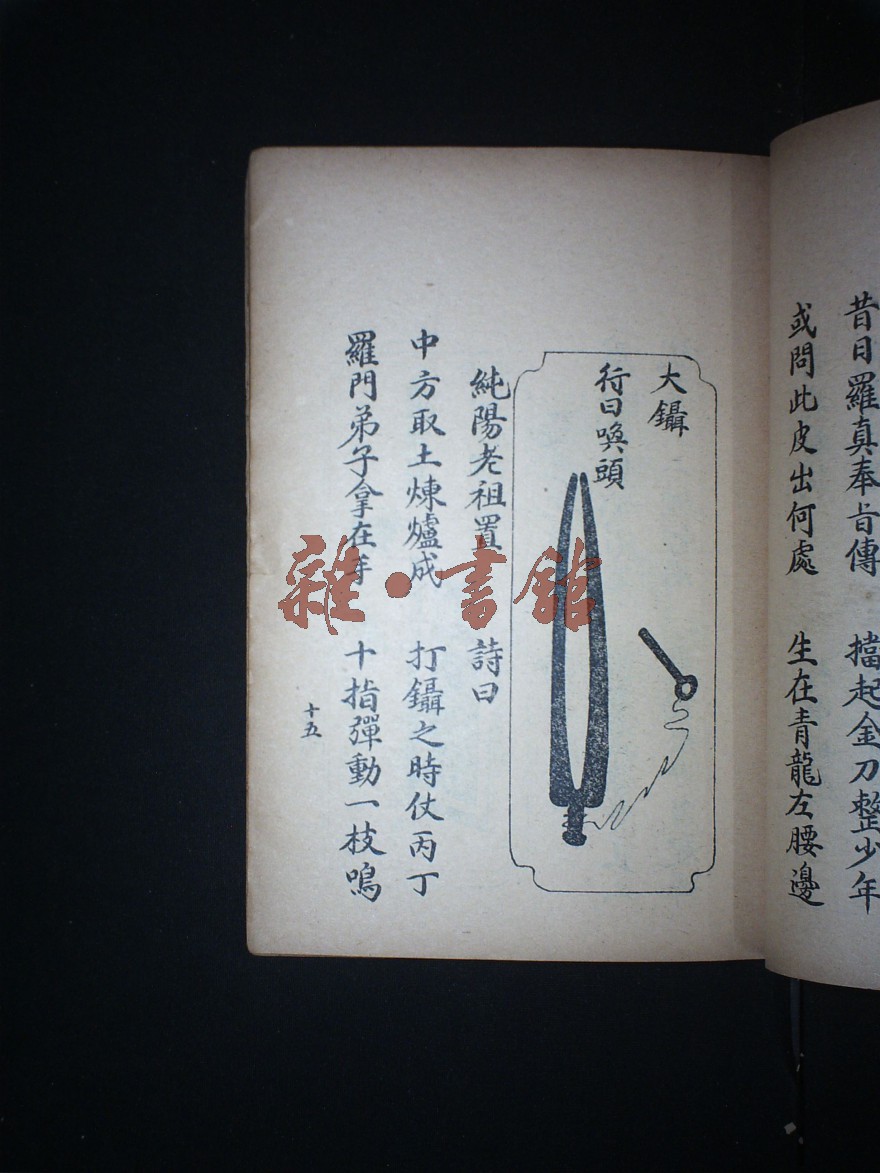 昔日羅真奉旨傳　擋起金刀整少年
或問此皮出何處　生在青龍左腰邊
大鑷
行曰喚頭
純陽老祖置　詩曰
中方取土煉爐成　打鑷之時仗丙丁
羅門弟子拿在手　十指彈動一枝鳴
十五
雜·書館